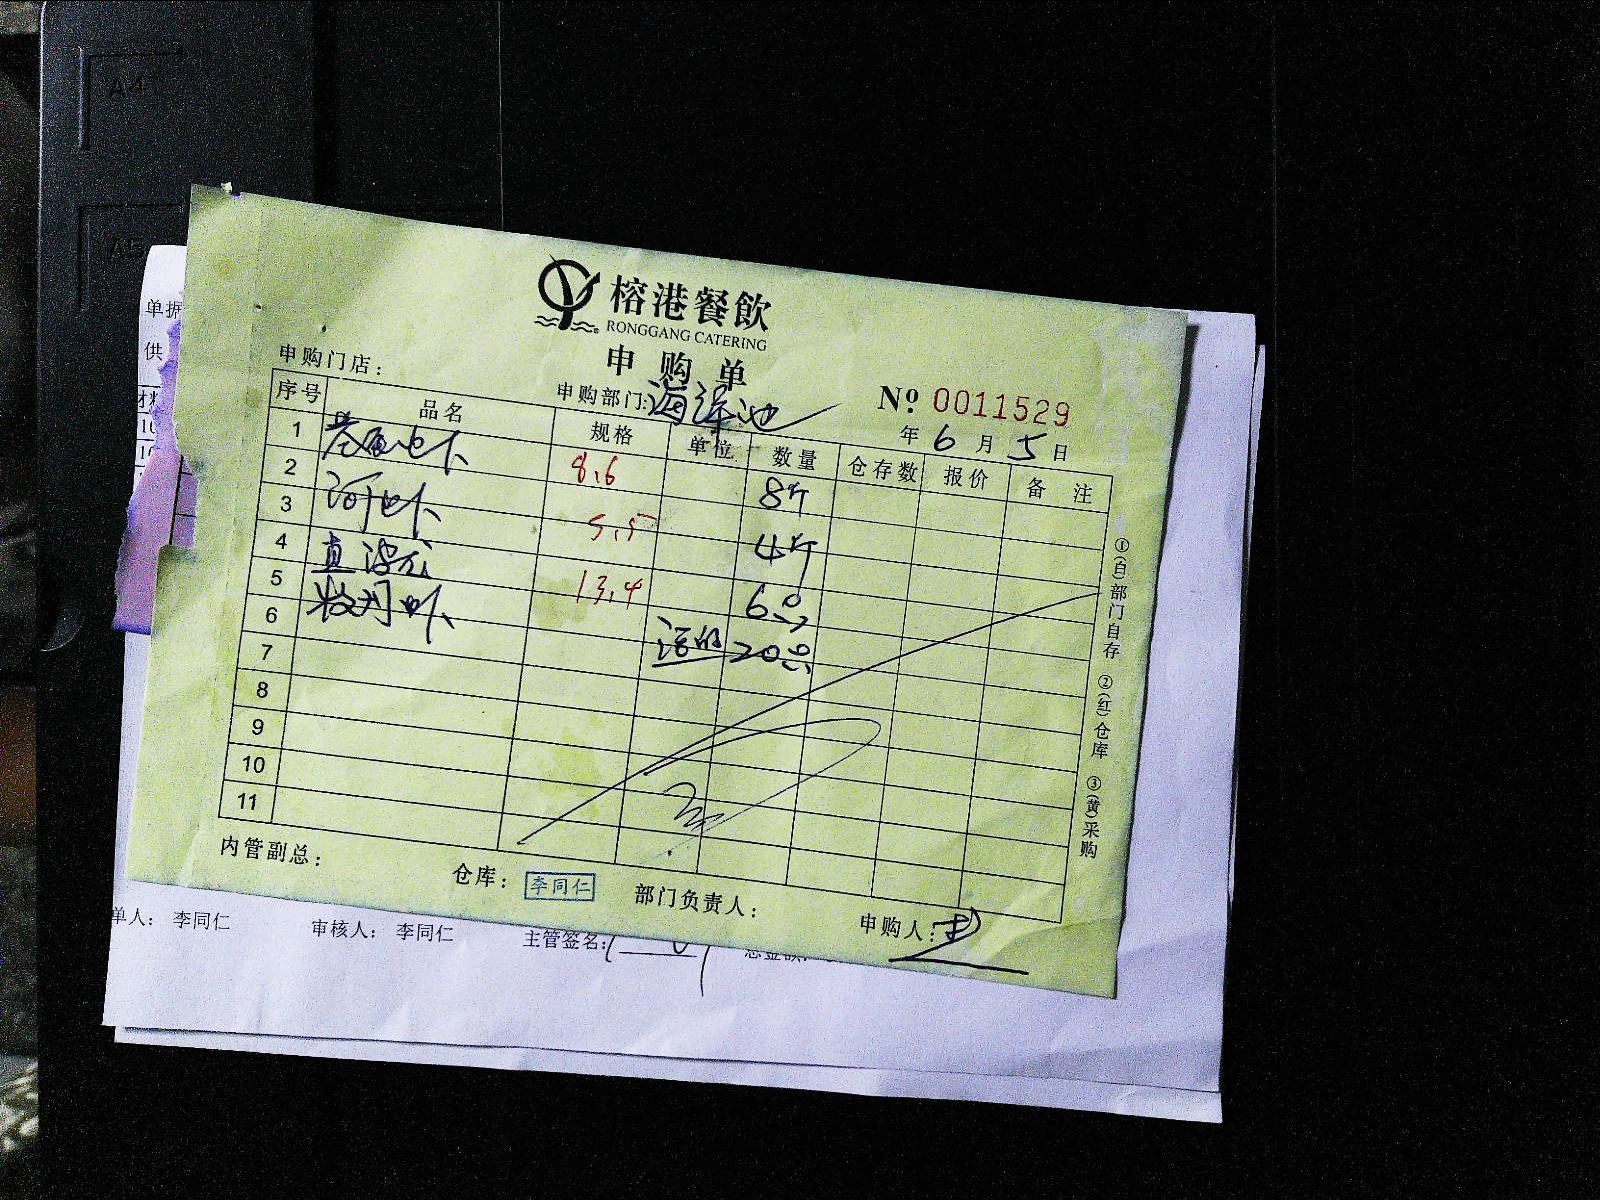 A4
A5
单据
供
榕港餐飲
RONGGANG CATERING
申购单
申购门店：
申购部门：海鲜池
№ 0011529
年 6 月 5 日
序号 品名 规格 单位 数量 仓存数 报价 备注
1 基围虾 8.6 8斤
2 河虾 5.5 4斤
3
4 13.4 6只
5 活的 20只
6
7
8
9
10
11
①(白)部门自存 ②(红)仓库 ③(黄)采购
内管副总：
仓库：李同仁
部门负责人：
申购人：
单人： 李同仁
审核人： 李同仁
主管签名：